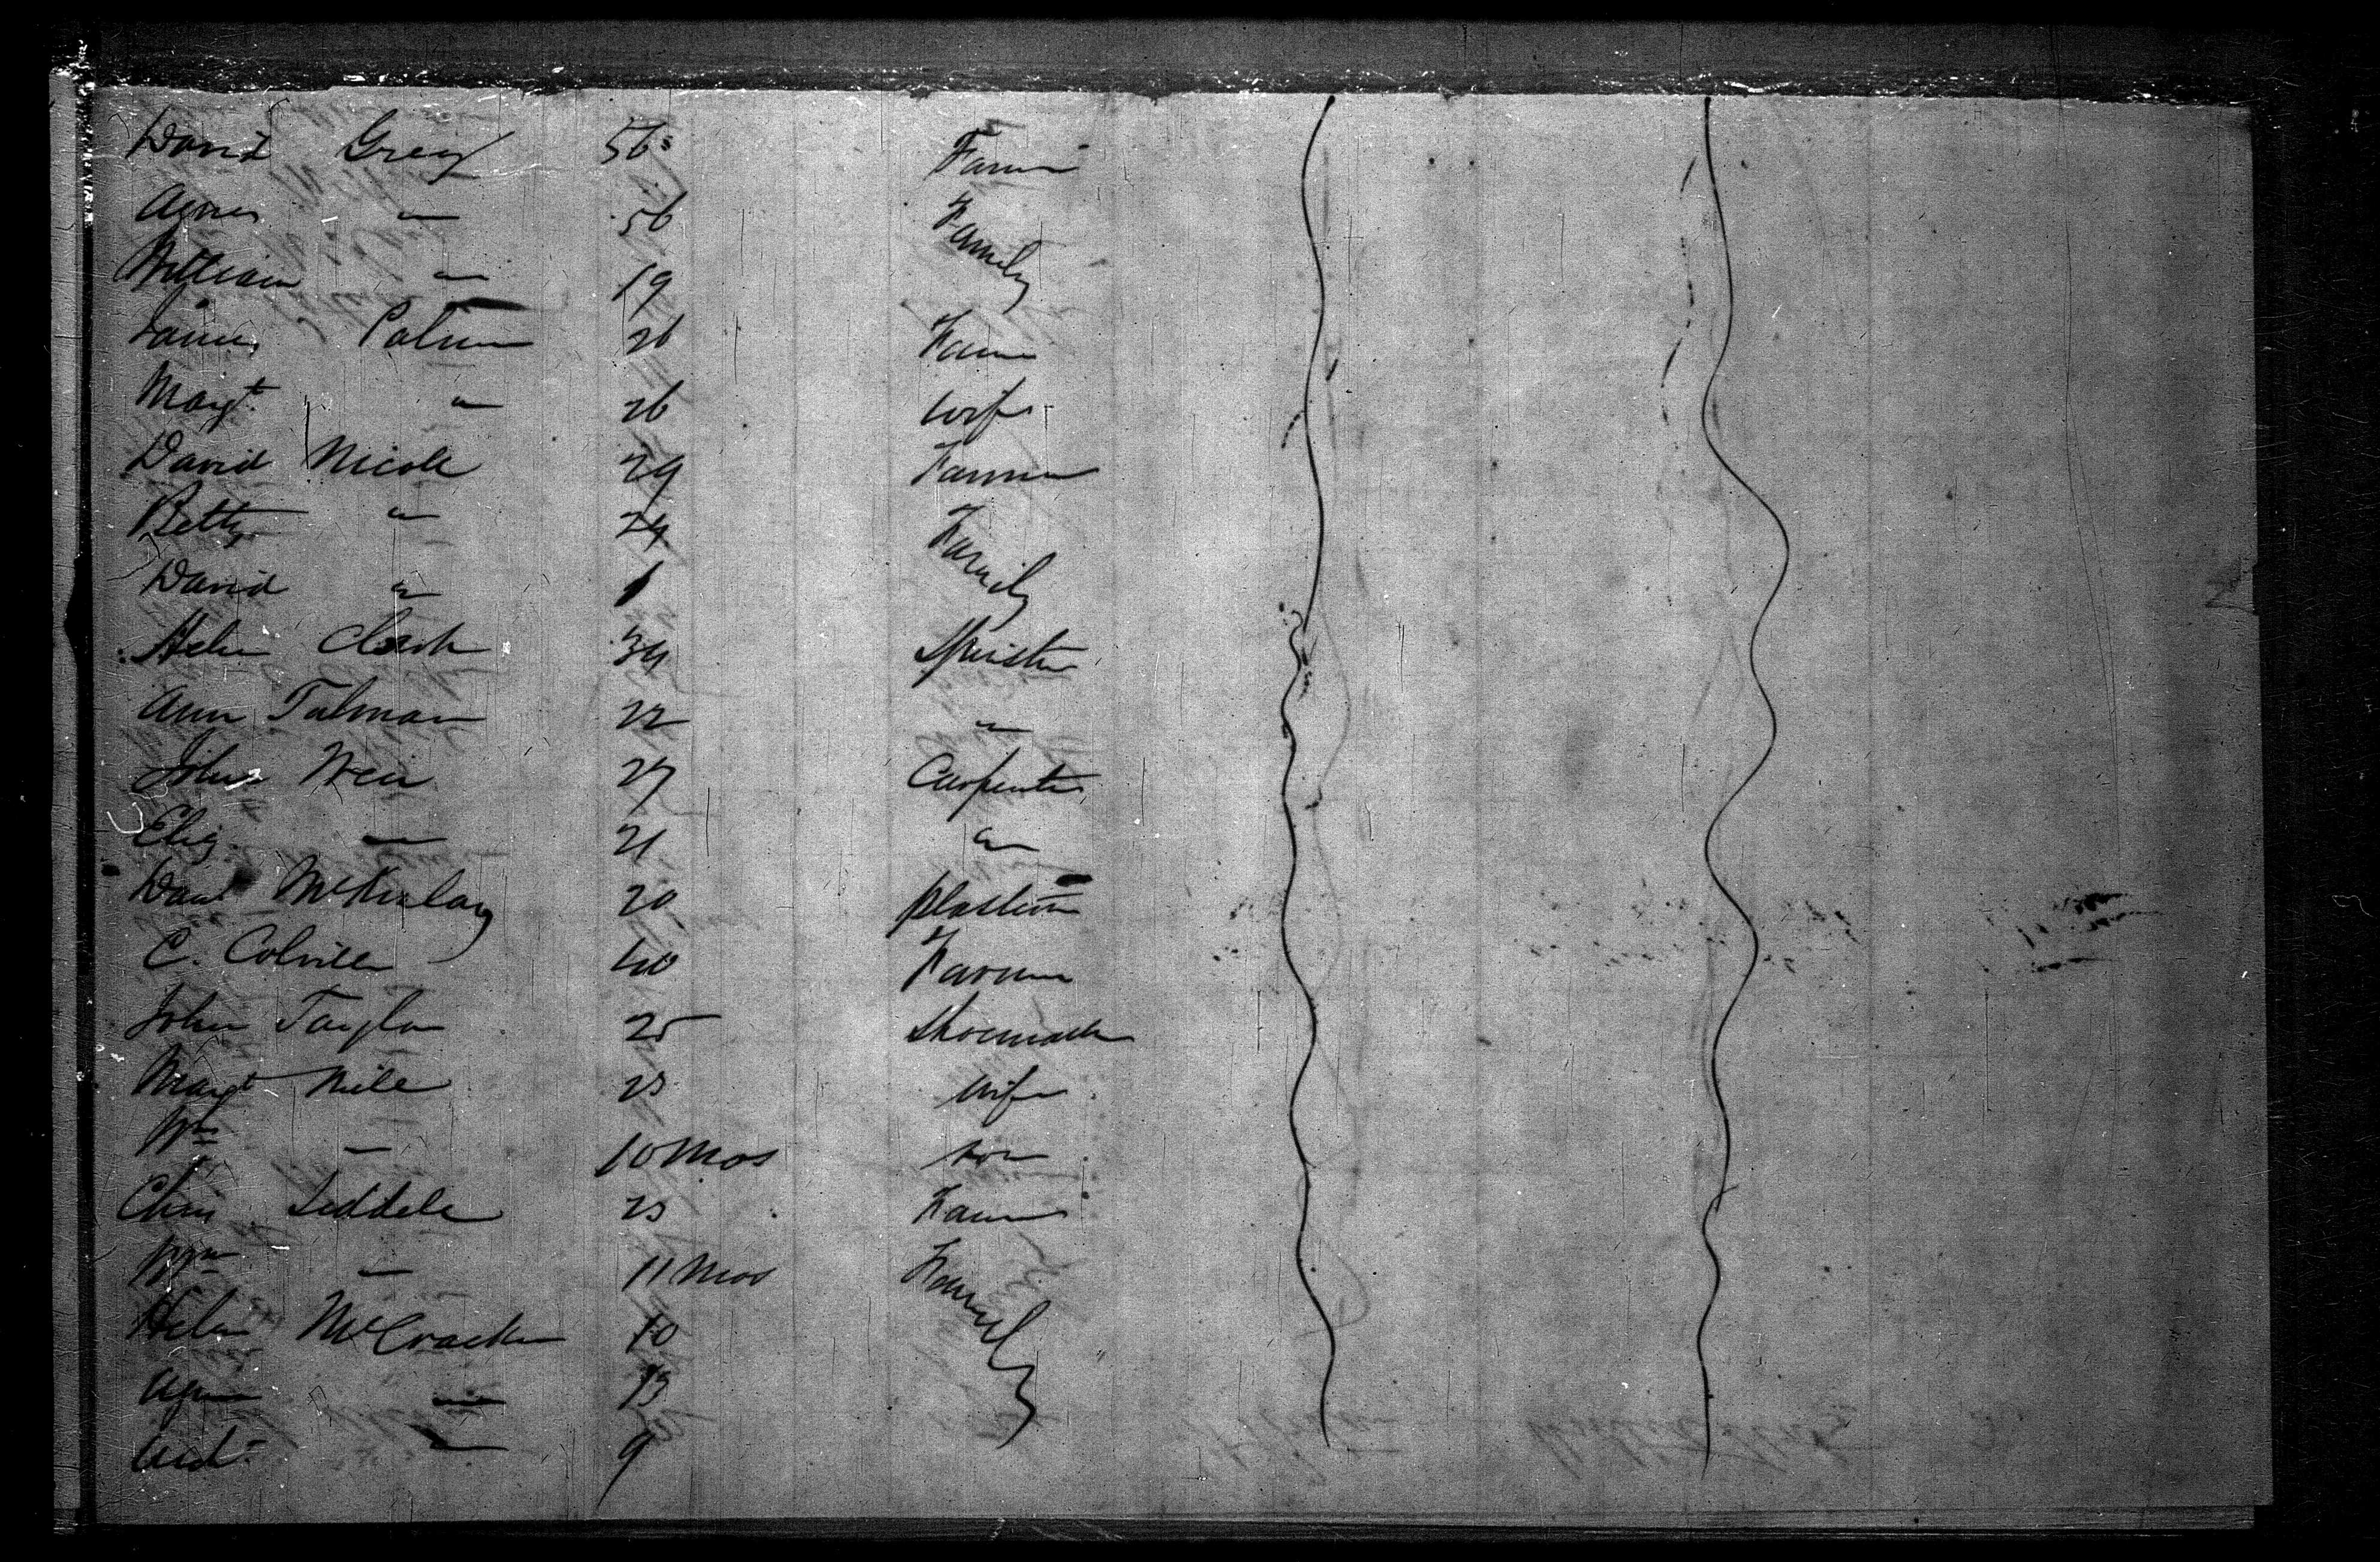 David Grey 56 Farmer
Agnes " 56 Family
William " 19
James Palmer 26 Farmer
Margt " 26 wife
David Nicole 29 Farmer
Betty " 24 Family
David " 1
Helen Clark 34 Spinster
Ann Talman 22 "
John Weir 27 Carpenter
Eliz. " 21 "
David McKinlay 20 plasterer
C. Colville 40 Farmer
John Taylor 25 Shoemaker
Margt Mile 25 wife
Wm " 10 Mos son
Chris Liddele 25 Farmer
Wm " 11 Mos Family
Helen McCracken 10
Agnes " 13
" 9